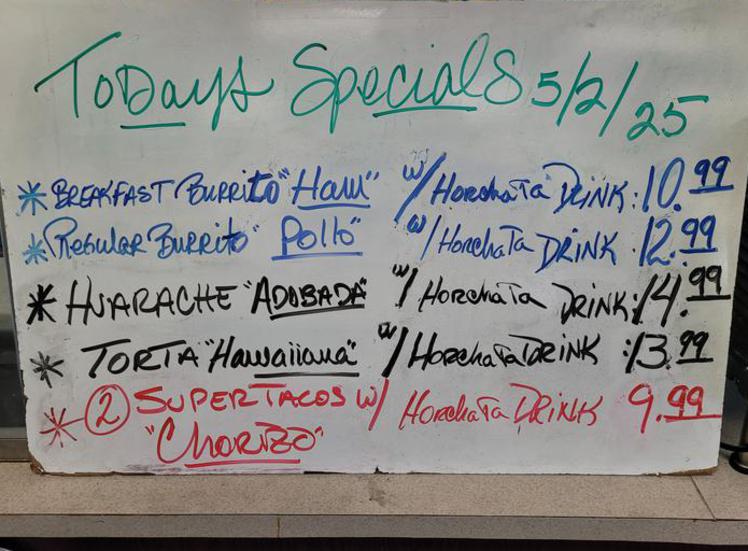 ToDays Specials 5/2/25
* BREAKFAST BURRITO "Ham" w/ HorchaTa DRINK: 10.99
* Regular Burrito "Pollo" w/ HorchaTa DRINK 12.99
* HUARACHE "ADOBADA" w/ HorchaTa DRINK: 14.99
* TORTA "Hawaiiana" w/ HorchaTa DRINK: 13.99
* ② SUPER TACOS w/ HorchaTa DRINK 9.99
"Chorizo"